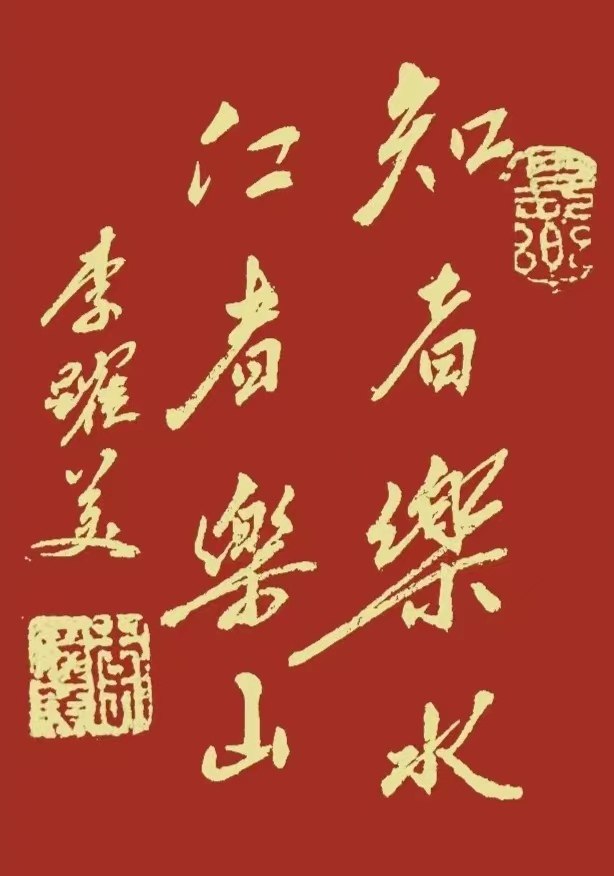 知者樂水
仁者樂山
李躍美